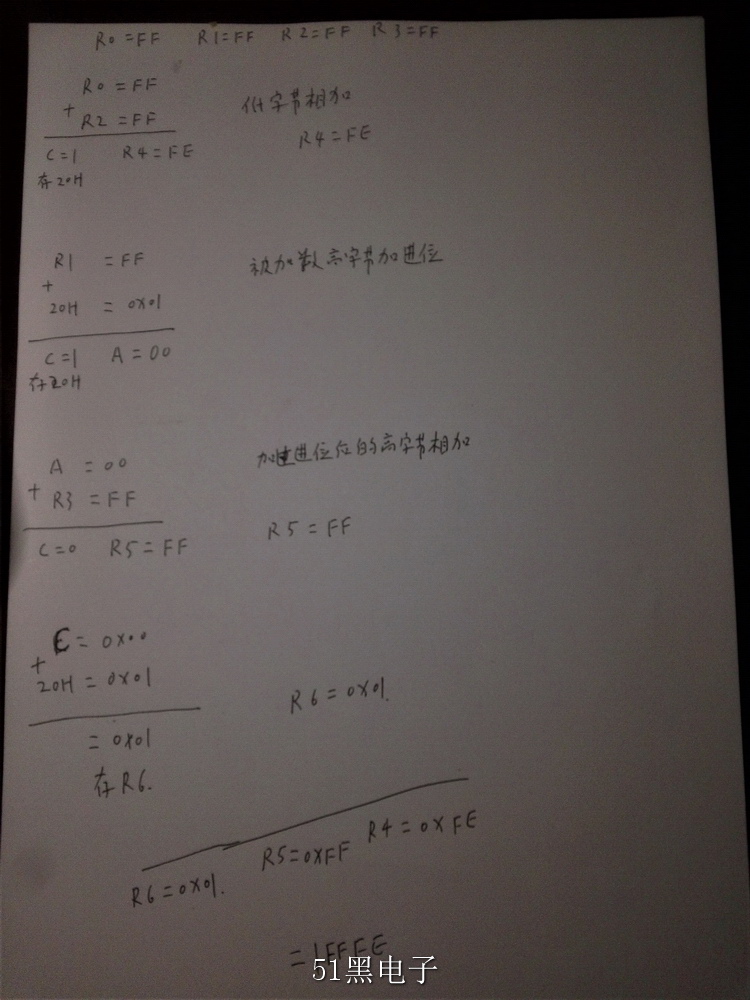 R0=FF R1=FF R2=FF R3=FF
R0=FF
+
R2=FF
低字节相加
C=1 R4=FE
R4=FE
存20H
R1 =FF
被加数高字节加进位
+
20H = 0x01
C=1 A=00
存20H
A =00
加进位位的高字节相加
+ R3 =FF
C=0 R5=FF
R5=FF
C= 0x00
+
20H= 0x01
R6=0x01.
= 0x01
存R6.
R6=0x01. R5=0xFF R4=0xFE
=1FFFE
51黑电子